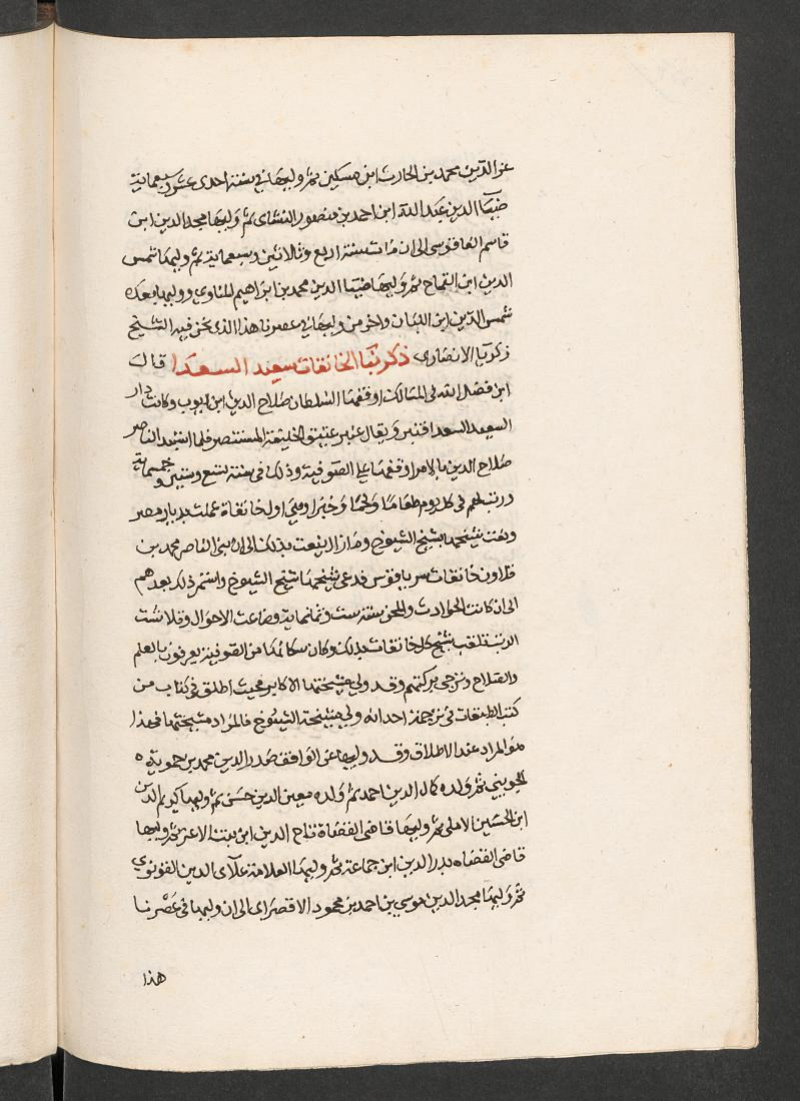 عز الدين محمد بن الحارث ابن مسكين ثم وليها في سنة احدى عشر وسبعماية
ضيا الدين عبد الله ابن احمد بن منصور النشاى ثم وليها مجد الدين ابن
قاسم الفاقوسى الى ان مات سنة اربع وثلاثين وسبعماية ثم وليها شمس
الدين ابن القماح ثم وليها ضيا الدين محمد بن ابراهيم المناوي ووليها بعده
شمس الدين ابن اللبان واخر من وليها في عصرنا هذا الذى نحن فيه الشيخ
زكريا الانصارى ذكر بنا الخانقات سعيد السعدا قال
ابن فضل الله في المسالك اوقفها السلطان صلاح الدين ابن ايوب وكانت دار
السعيد السعدا قنبر ويقال عنبر عتيق الخليفة المستنصر فلما استبد الناصر
صلاح الدين بالامر اوقفها على الصوفية وذلك في سنة تسع وستين وخمسماية
ورتب لهم في كل يوم طعاما ولحما وخبزا وهي اول خانقاة عملت بديار مصر
ونعت شيخها بشيخ الشيوخ وما زال ينعت بذلك الى ان بنى الناصر محمد بن
قلاون خانقات سرياقوس فدعى شيخها شيخ الشيوخ واستمر ذلك بعدهم
الى ان كانت الحوادث والمحن سنة ست وثمنماية وضاعت الاحوال وتلاشت
الرتب تلقب شيخ كل خانقات بذلك وكان سكانها من الصوفية يعرفون بالعلم
والصلاح وترجى بركتهم وقد ولى مشيختها الاكابر وحيث اطلق في كتاب من
كتب الطبقات في ترجمة احد انه ولي مشيخة الشيوخ فالمراد مشيختها فهذا
هو المراد عند الاطلاق وقد وليها عن الواقف صدر الدين محمد بن حمويه
الجويني ثم ولده كمال الدين احمد ثم ولده معين الدين حسن ثم وليها كريم الدين
ابن الحسين الاملى ثم وليها قاضى القضاة تاج الدين ابن بنت الاعز ثم وليها
قاضى القضاه بدر الدين ابن جماعة ثم وليها العلامة علاى الدين القونوي
ثم وليها مجد الدين موسي بن احمد بن محمود الاقصراى الى ان وليها في عصرنا
هذا